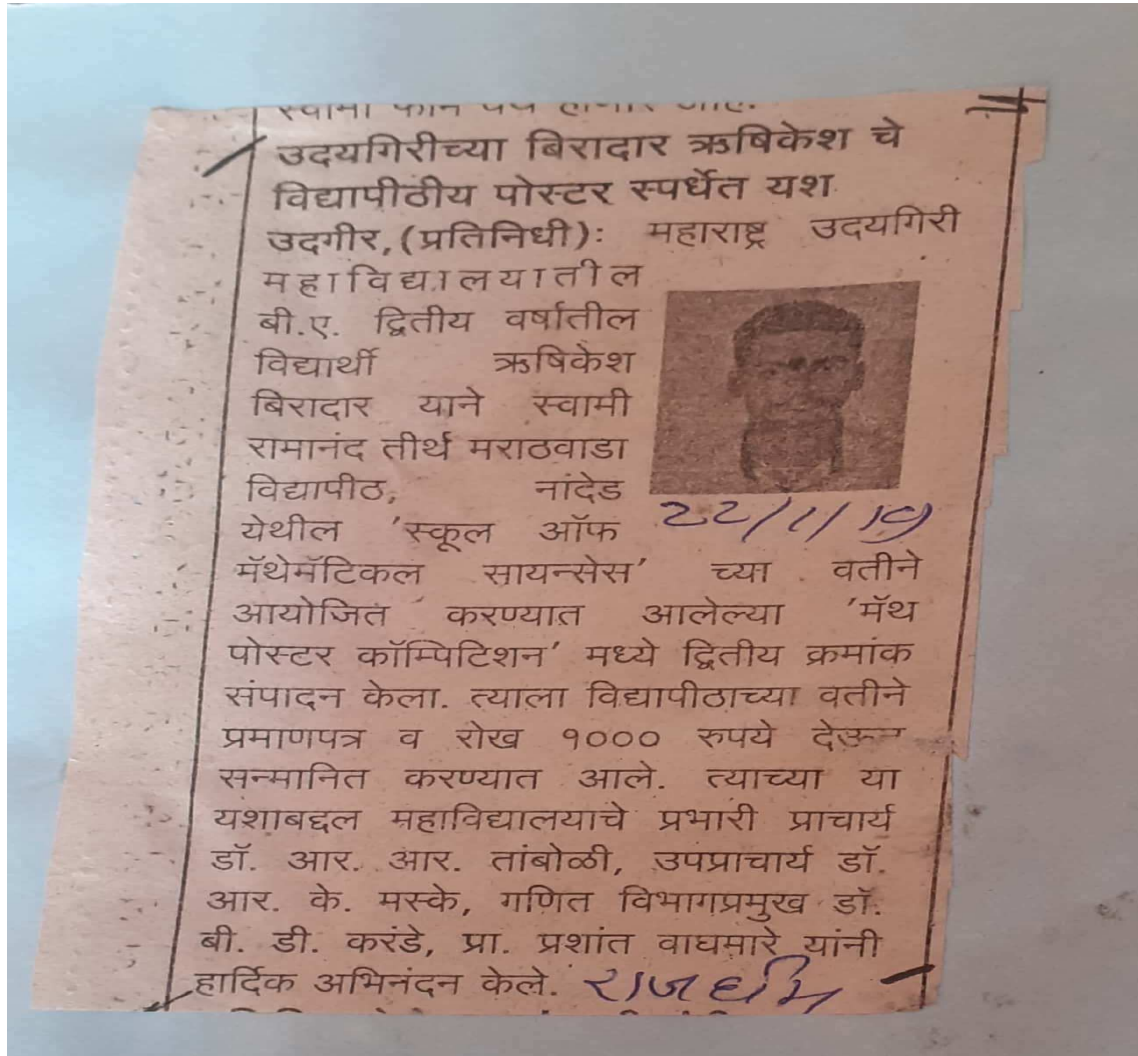 उदयगिरीच्या बिरादार ऋषिकेश चे
विद्यापीठीय पोस्टर स्पर्धेत यश
उदगीर,(प्रतिनिधी): महाराष्ट्र उदयगिरी
महाविद्यालयातील
बी.ए. द्वितीय वर्षातील
विद्यार्थी ऋषिकेश
बिरादार याने स्वामी
रामानंद तीर्थ मराठवाडा
विद्यापीठ, नांदेड
येथील 'स्कूल ऑफ
22/1/19
मॅथेमॅटिकल सायन्सेस' च्या वतीने
आयोजित करण्यात आलेल्या 'मॅथ
पोस्टर कॉम्पिटिशन' मध्ये द्वितीय क्रमांक
संपादन केला. त्याला विद्यापीठाच्या वतीने
प्रमाणपत्र व रोख १००० रुपये देऊन
सन्मानित करण्यात आले. त्याच्या या
यशाबद्दल महाविद्यालयाचे प्रभारी प्राचार्य
डॉ. आर. आर. तांबोळी, उपप्राचार्य डॉ.
आर. के. मस्के, गणित विभागप्रमुख डॉ.
बी. डी. करंडे, प्रा. प्रशांत वाघमारे यांनी
हार्दिक अभिनंदन केले.